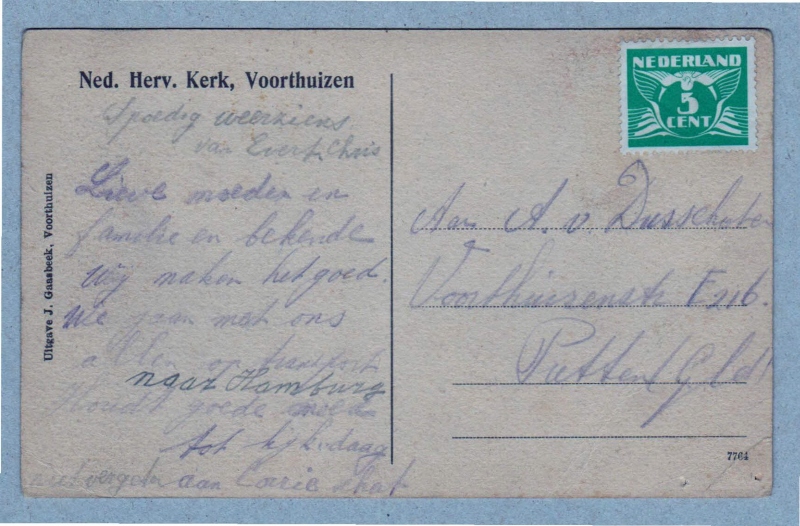 Ned. Herv. Kerk, Voorthuizen
Spoedig weerziens
van Evert, Chris
Lieve moeder en
familie en bekende
wij maken het goed.
We gaan met ons
allen op transport
naar Hamburg
Houdt goede moed
tot kijk daag
niet vergeten aan Corrie schat
Uitgave J. Gaasbeek, Voorthuizen
NEDERLAND
5
CENT
Aan A. v. Dusschoten
Voorthuizenstr F 216.
Putten (Geld)
7764